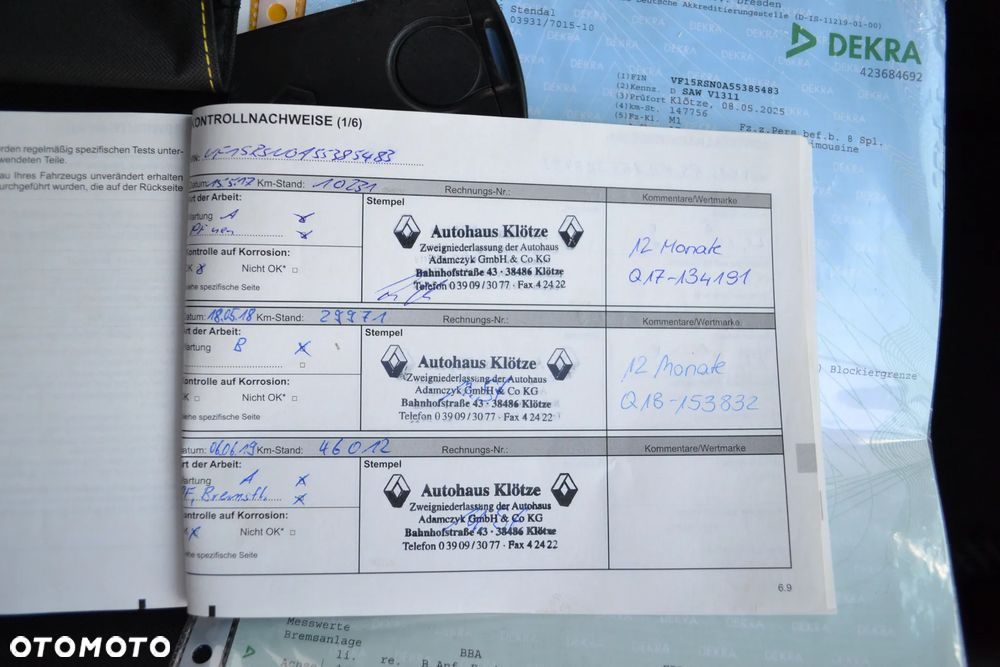 Dresden
Deutsche Akkreditierungsstelle (D-IS-11219-01-00)
Stendal
03931/7015-10
DEKRA
423684692
(1)FIN VF15RSN0A55385483
(2)Kennz. D SAW V1311
(3)Prüfort Klötze, 08.05.2025
(4)km-St. 147756
(5)Fz-Kl. M1
Fz.z.Pers bef.b. 8 Spl.
imousine
) Blockiergrenze
rden regelmäßig spezifischen Tests unter-
wendeten Teile.
au Ihres Fahrzeugs unverändert erhalten
urchgeführt wurden, die auf der Rückseite
KONTROLLNACHWEISE (1/6)
VF15RSN0A55385483
Datum: 15.5.17 Km-Stand: 10231 Rechnungs-Nr.: Kommentare/Wertmarke
rt der Arbeit: Stempel
artung A
Autohaus Klötze
Zweigniederlassung der Autohaus
Adamczyk GmbH & Co KG
Bahnhofstraße 43 · 38486 Klötze
Telefon 0 39 09 / 30 77 · Fax 4 24 22
12 Monate
Q17-134191
ontrolle auf Korrosion:
K Nicht OK*
ehe spezifische Seite
atum: 18.05.18 Km-Stand: 29971 Rechnungs-Nr.: Kommentare/Wertmarke
rt der Arbeit: Stempel
artung B
Autohaus Klötze
Zweigniederlassung der Autohaus
Adamczyk GmbH & Co KG
Bahnhofstraße 43 · 38486 Klötze
Telefon 0 39 09 / 30 77 · Fax 4 24 22
12 Monate
Q18-153832
ontrolle auf Korrosion:
K Nicht OK*
ehe spezifische Seite
atum: 06.06.19 Km-Stand: 46012 Rechnungs-Nr.: Kommentare/Wertmarke
rt der Arbeit: Stempel
artung A
F, Bremsfl.
Autohaus Klötze
Zweigniederlassung der Autohaus
Adamczyk GmbH & Co KG
Bahnhofstraße 43 · 38486 Klötze
Telefon 0 39 09 / 30 77 · Fax 4 24 22
ontrolle auf Korrosion:
K Nicht OK*
ehe spezifische Seite
6.9
Messwerte
Bremsanlage BBA
li. re.
OTOMOTO